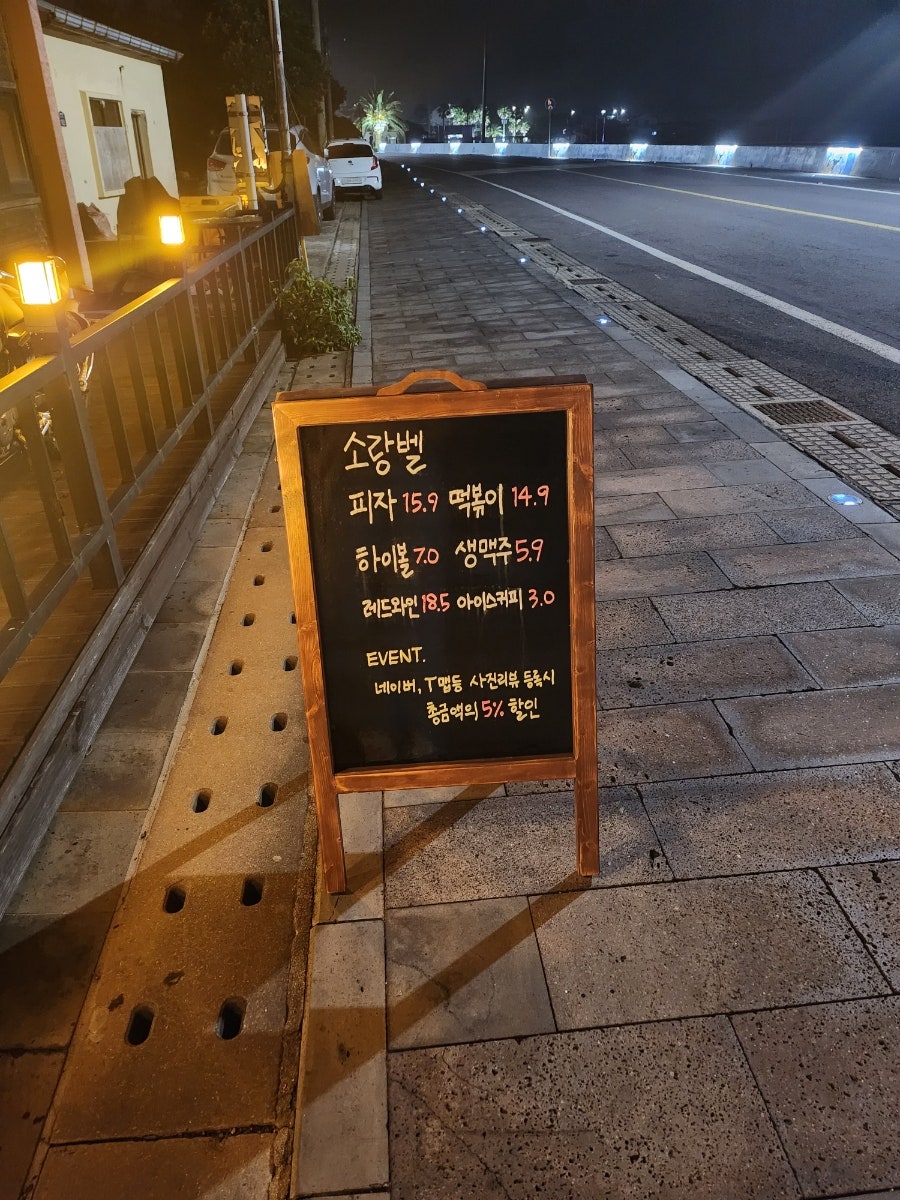 소랑벨
피자 15.9 떡볶이 14.9
하이볼 7.0 생맥주 5.9
레드와인 18.5 아이스커피 3.0
EVENT.
네이버, T맵등 사진리뷰 등록시
총금액의 5% 할인